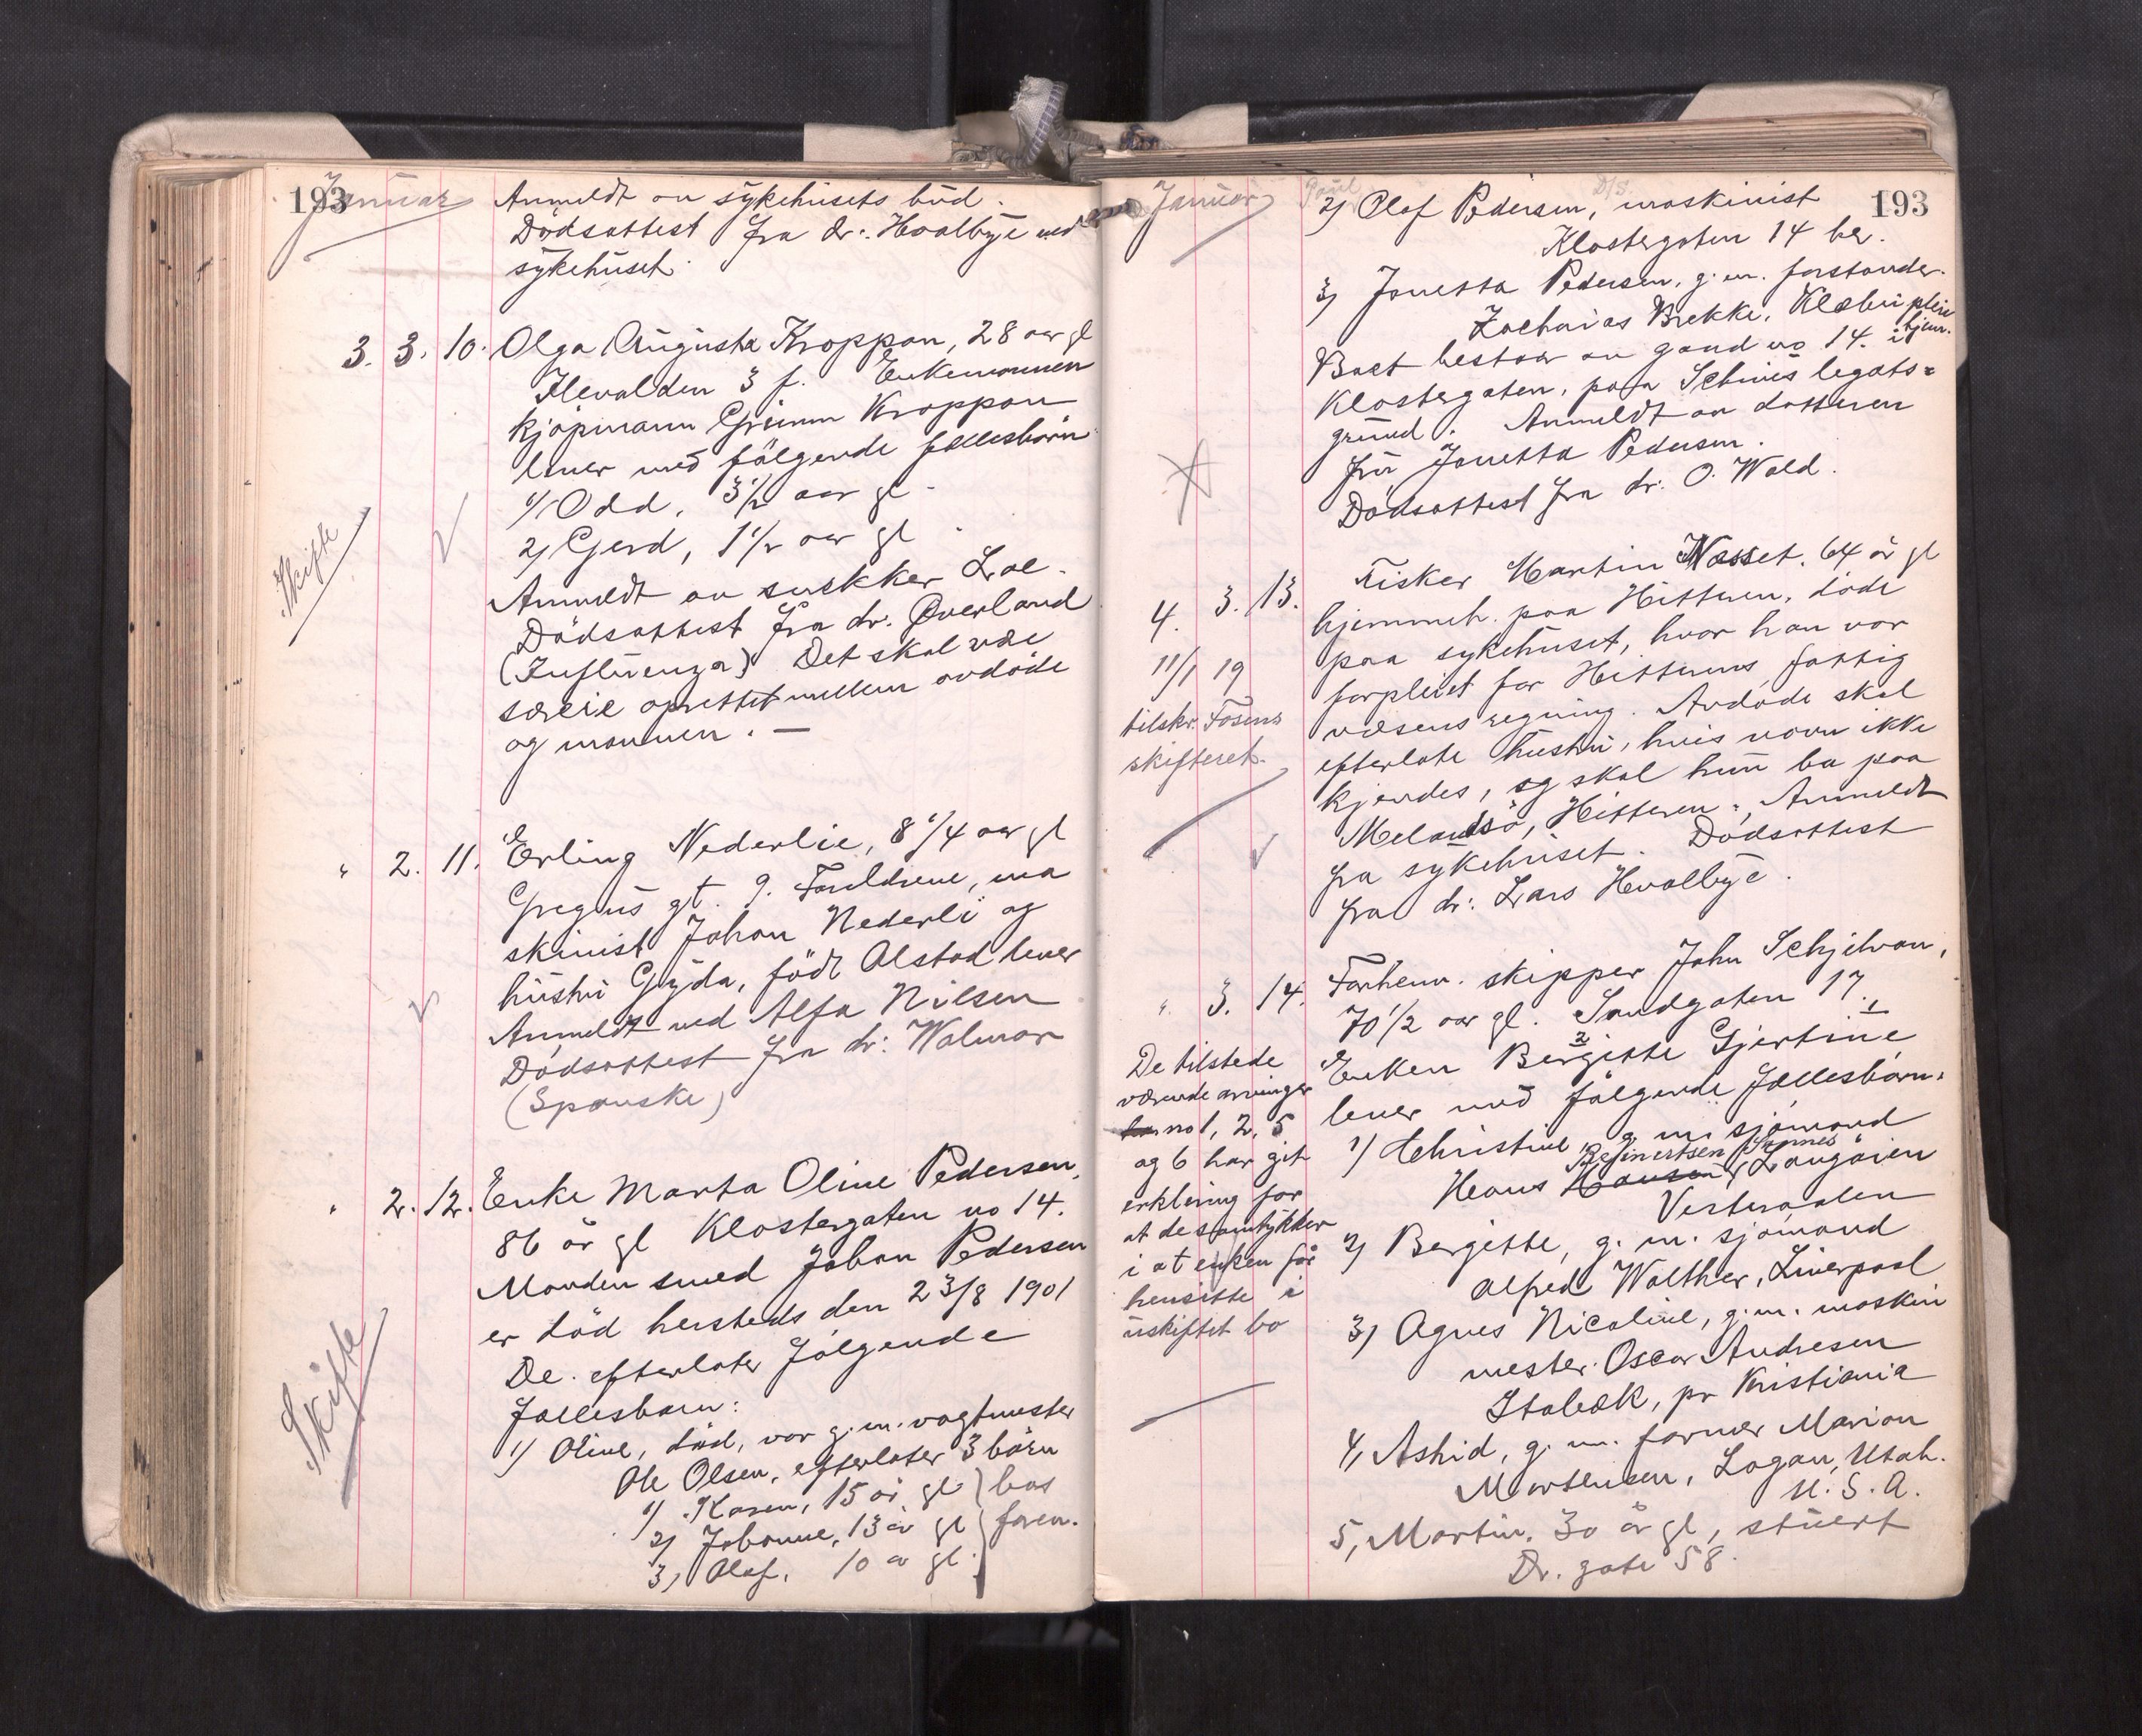 193
Januar
Anmeldt av sykehusets bud.
Dödsattest fra dr. Hvalbye ved
sykehuset.
3. 3. 10. Olga Augusta Kroppan, 28 aar gl
Ilevolden 3 f. Enkemannen
kjöpmann Grimm Kroppan
lever med fölgende fællesbörn
1) Odd, 3 1/2 aar gl.
2) Gerd, 1 1/2 aar gl.
Skifte
Anmeldt av snekker Loe.
Dödsattest fra dr. Øverland
(Influenza) Det skal være
særeie oprettet mellem avdöde
og mannen. —
" 2. 11. Erling Nederlie, 8 1/4 aar gl
Gregus gt. 9. Foreldrene, ma
skinist Johan Nederli og
hustru Gyda, födt Alstad lever
Anmeldt ved Alfa Nilsen
Dödsattest fra dr: Walmar
(Spanske)
" 2. 12. Enke Marta Oline Pedersen,
86 år gl Klostergaten no 14.
Manden smed Johan Pedersen
er död hersteds den 23/8 1901
De efterlater fölgende
Skifte
fællesbarn:
1) Oline, död, var g. m. vagtmester
Ole Olsen, efterlater 3 börn
1) Karen, 15 år gl } hos
2) Johanne, 13 år gl } faren.
3) Olaf, 10 år gl. }
193
Januar
Paul
2) Olaf Pedersen, maskinist
Klostergaten 14 her.
3) Jonetta Pedersen, g. m. forstander
Zacharias Brekke, Klæbu pleie
hjem.
Boet bestaar av gaard no 14. i
Klostergaten, paa Schives legats=
grund. Anmeldt av datteren
fru Jonetta Pedersen.
Dödsattest fra dr. O. Wald.
4. 3. 13. Fisker Martin Næsset, 64 år gl
hjemmeh. paa Hitteren, döde
paa sykehuset, hvor han var
forpleiet for Hitterens fattig
væsens regning. Avdöde skal
efterlate hustru, hvis navn ikke
kjendes, og skal hun bo paa
Melandsö, Hitteren. Anmeldt
fra sykehuset. Dödsattest
fra dr. Lars Hvalbye.
11/1 19
tilskr. Fosens
skifteret.
" 3. 14. Forhenv. skipper John Schjelvan,
70 1/2 aar gl. Sandgaten 17.
Enken Bergitte Gjertine
lever med fölgende fællesbarn:
1) Christine g. m. sjömand
Hans Hansen Reinertsen Sannes, Langöien
Vesteraalen
2) Bergitte, g. m. sjömand
Alfred Walther, Liverpool
3) Agnes Nicoline, g. m. maskin
mester Oscar Andresen
Stabæk, pr Kristiania
4, Astrid, g. m. farmer Marion
Mortensen, Logan, Utah.
U. S. A.
5, Martin, 30 år gl, stuert
Dr. gate 58.
De tilstede
værende arvinger
no 1, 2, 5
og 6 har git
erklering for
at de samtykker
i at enken får
hensitte i
uskiftet bo